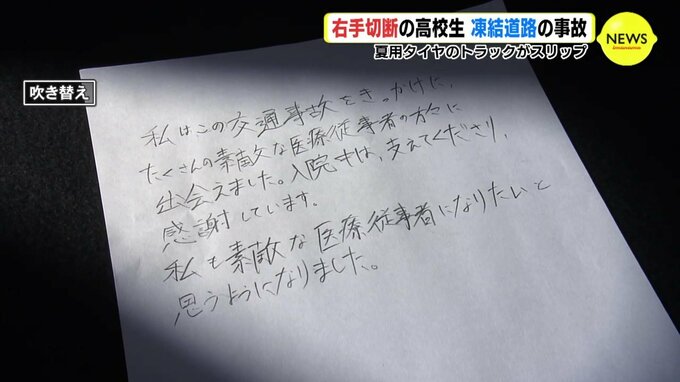 右手切断の高校生 凍結道路の事故
夏用タイヤのトラックがスリップ
NEWS
吹き替え
私はこの交通事故をきっかけに、
たくさんの素敵な医療従事者の方々に
出会えました。入院中は、支えてくださり、
感謝しています。
私も素敵な医療従事者になりたいと
思うようになりました。